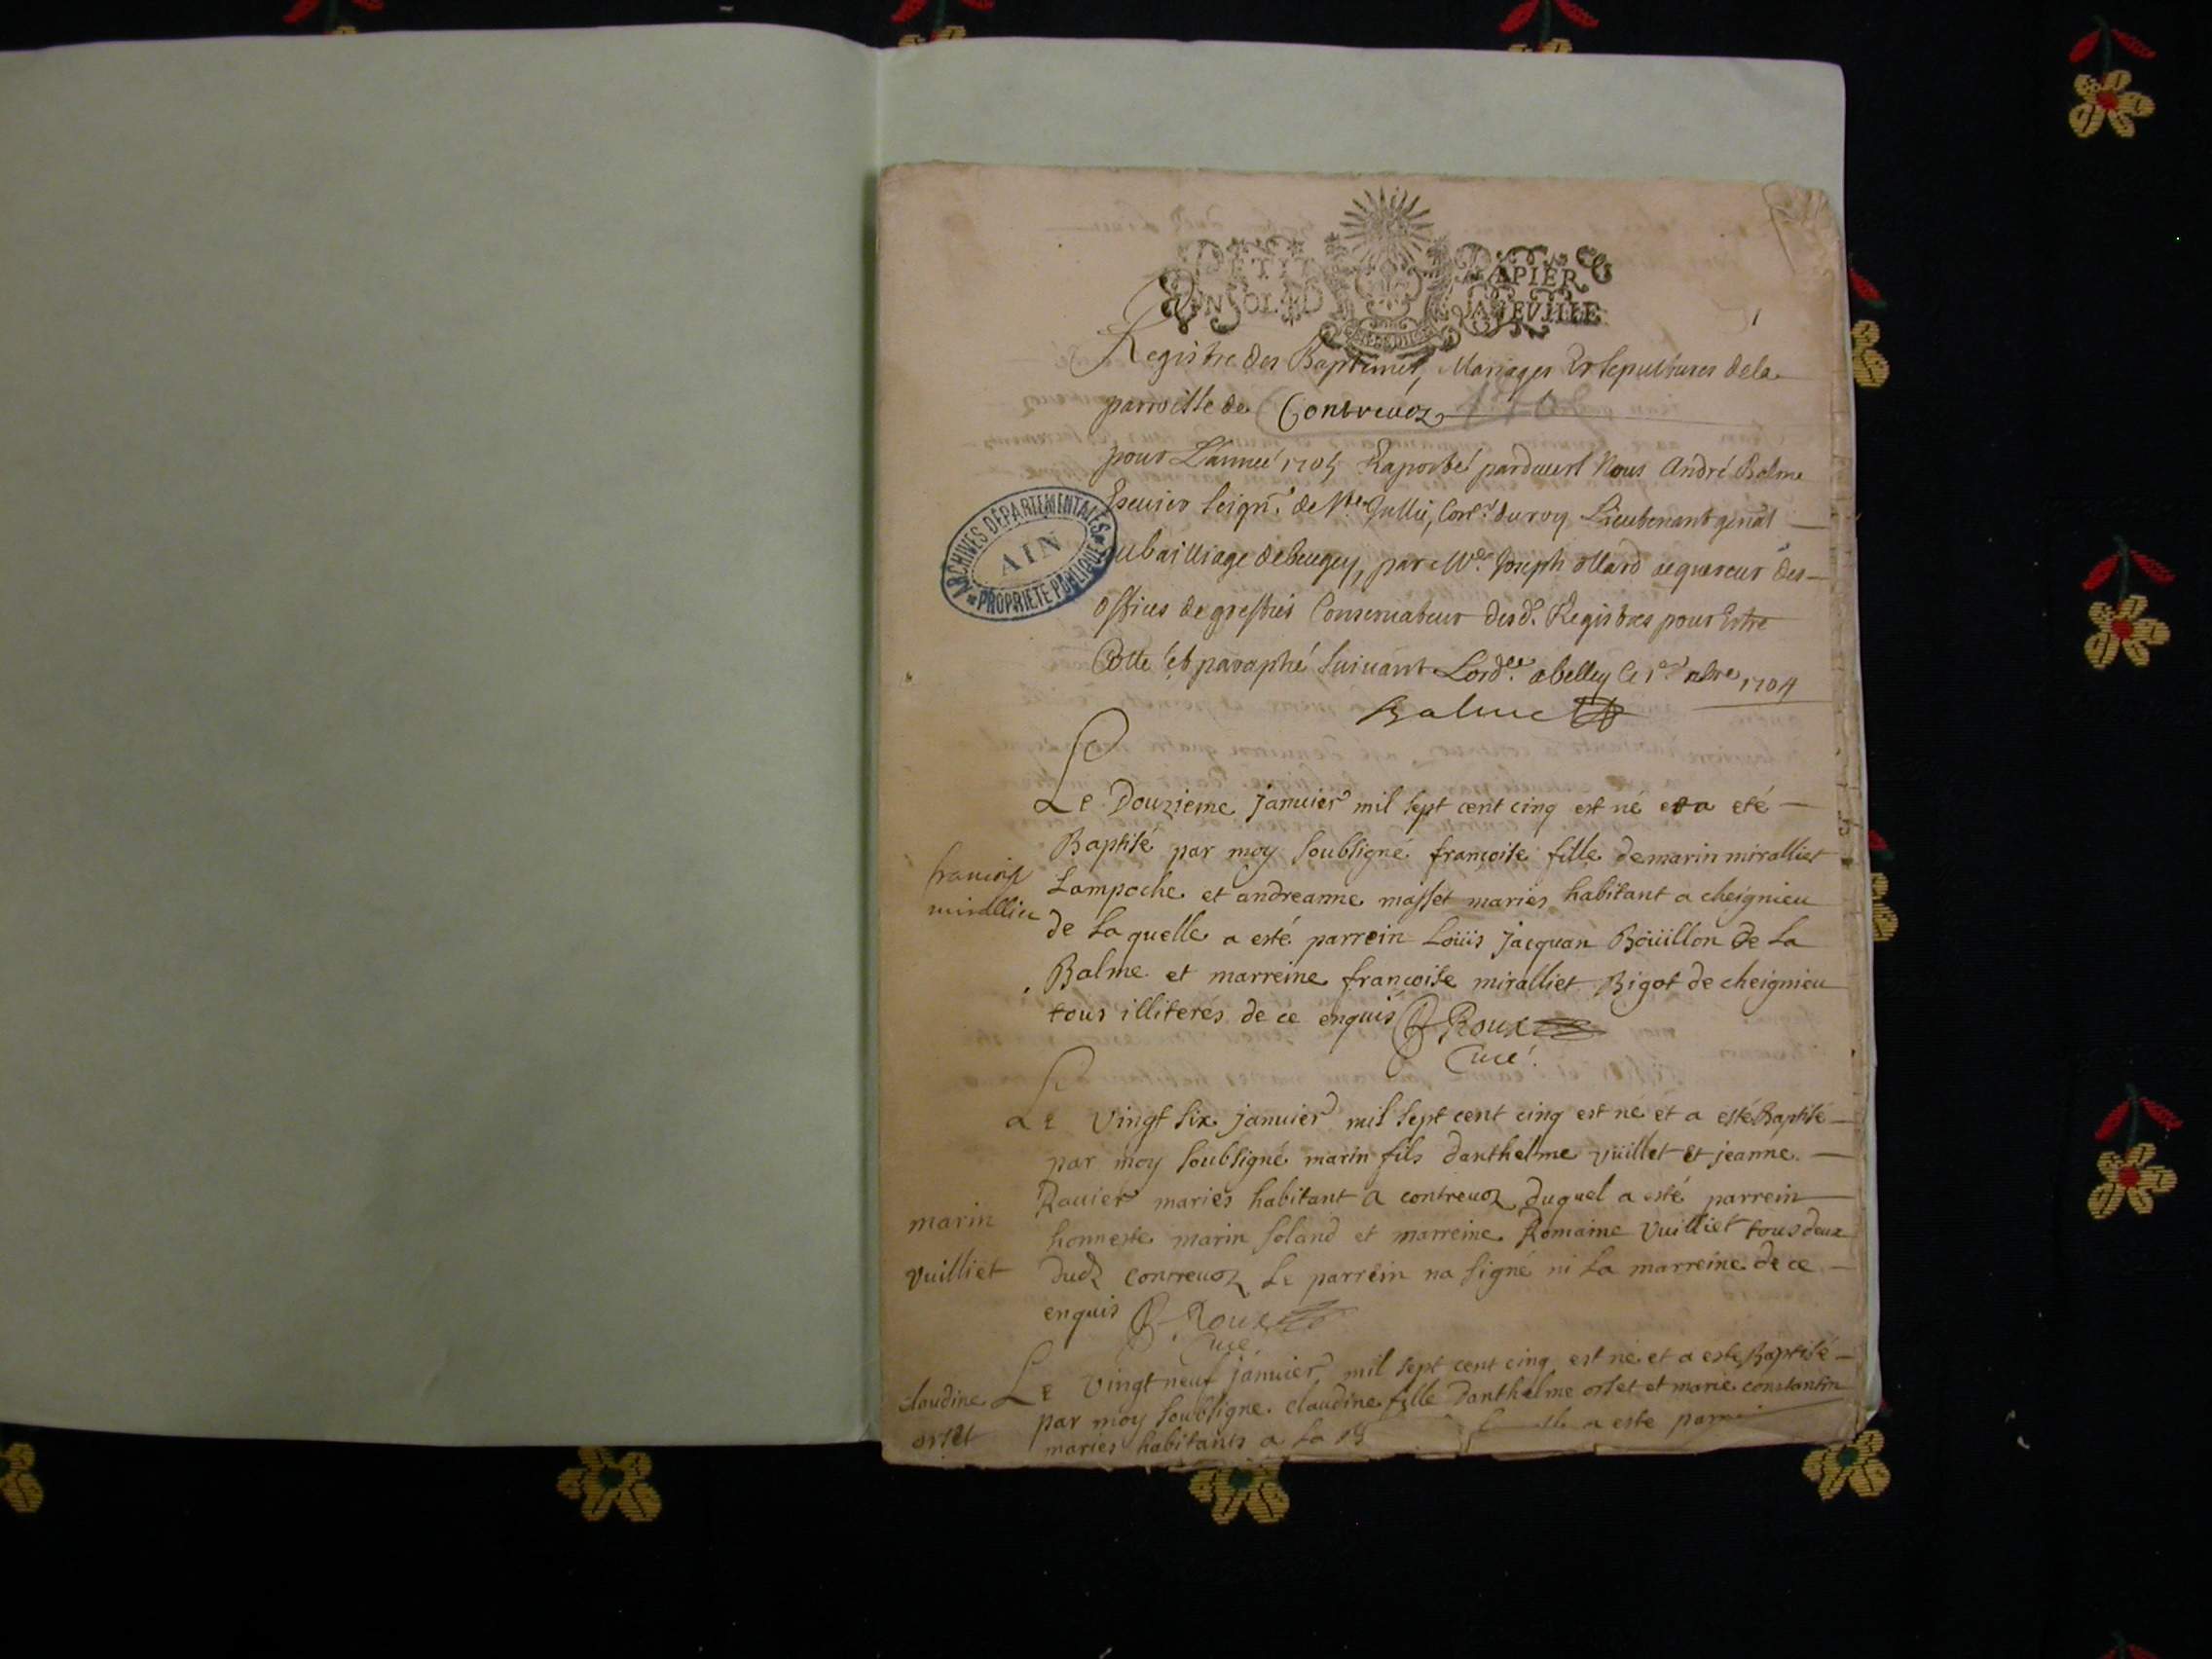 PETIT PAPIER
UN SOL LA FEUILLE
1
Registre des Baptemes, Mariages Et Sepultures dela
parroisse de Contrevoz
pour L'année 1705 Raporté pardevert Nous André Balme
Escuier Seignr. de Ste Jullie, Conser. du roy Lieutenant genal
au bailliage debeugey, par Me. Joseph ollard acquereur des
offices de greffier Conservateur desd. Registres pour Estre
Cotté et paraphé suivant Lordce. abelley le 1er xbre 1704
Balme
ARCHIVES DÉPARTEMENTALES
AIN
PROPRIÉTÉ PUBLIQUE
Le Douzieme janvier mil sept cent cinq est né et a eté
Baptisé par moy soubsigné françoise fille demarin miralliet
francoise
miralliet
Lampoche et andreanne masset mariés habitant a cheignieu
de Laquelle a esté parrein Loüis jacquan Boüillon de La
Balme et marreine françoise miralliet Bigot de cheignieu
tous illiterés de ce enquis Roux
Curé
Le vingt six janvier mil sept cent cinq est né et a esté Baptisé
par moy soubsigné marin fils danthelme vuillet et jeanne
Ravier mariés habitant a contrevoz duquel a esté parrein
marin
vuilliet
honneste marin soland et marreine Romaine vuilliet tous deux
dud contrevoz Le parrein na signé ni La marreine de ce
enquis Roux
Curé
Le vingt neuf janvier mil sept cent cinq est né et a esté Baptisé
claudine
orset
par moy soubsigné claudine fille danthelme orset et marie constantin
mariés habitants a La a esté parrein